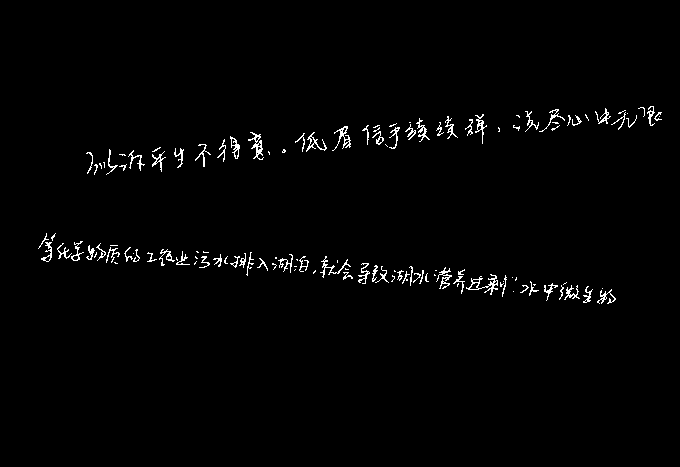 似诉平生不得意。低眉信手续续弹,说尽心中无限
等化学物质的工农业污水排入湖泊,就会导致湖水营养过剩:水中微生物